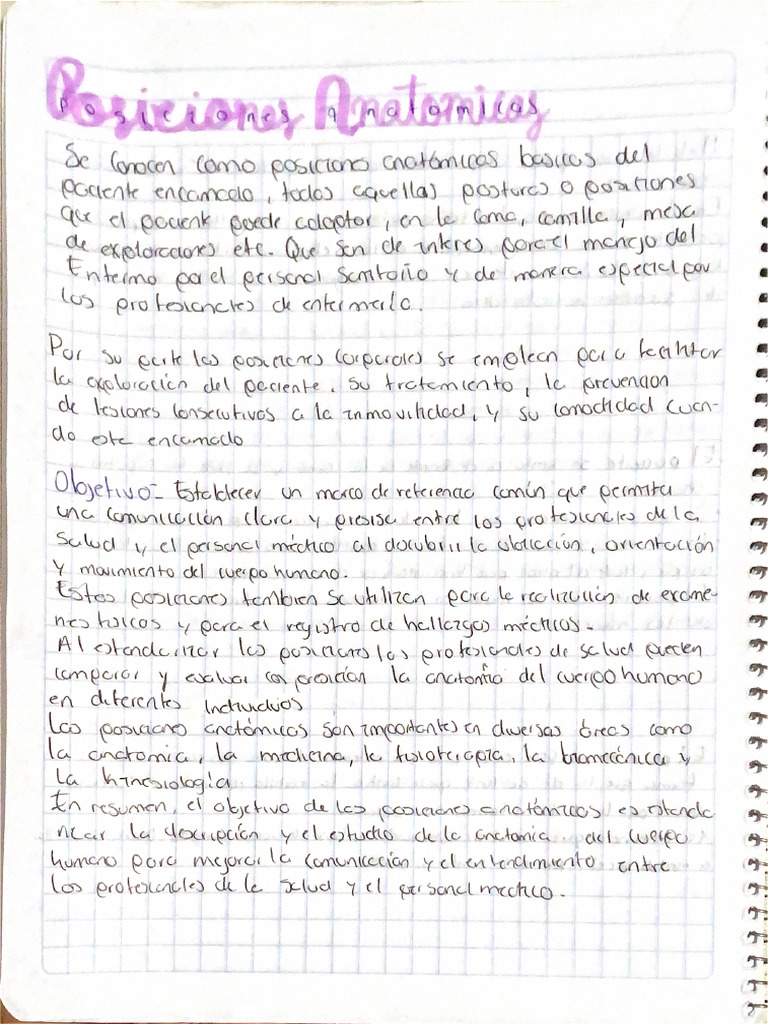 Posiciones Anatomicas
Se conocen como posiciones anatómicas basicas del
paciente encamado, todas aquellas posturas o posiciones
que el paciente puede adoptar, en la cama, camilla, mesa
de exploraciones etc. Que son de interes para el manejo del
Enfermo por el personal Sanitario y de manera especial por
los profesionales de enfermería.
Por su parte las posiciones corporales se emplean para facilitar
la exploración del paciente. su tratamiento, la prevencion
de lesiones consecutivas a la inmovilidad, y su comodidad cuan-
do este encamado
Objetivo- Establecer un marco de referencia común que permita
una comunicación clara y presisa entre los profesionales de la
salud y el personal médico al descubrir la ubicación, orientación
y movimiento del cuerpo humano.
Estas posiciones tambien se utilizan para la realización de exame-
nes fisicos y para el registro de hallazgos médicos.
Al estandarizar las posiciones los profesionales de salud pueden
comparar y evaluar con presición la anatomía del cuerpo humano
en diferentes individuos
Las posiciones anatómicas son importantes en diversas áreas como
la anatomia, la medicina, la fisioterapia, la biomecánica y
la kinesiología
En resumen, el objetivo de las posiciones anatómicas es estanda
rizar la descripción y el estudio de la anatomia del cuerpo
humano para mejorar la comunicación y el entendimiento entre
los profesionales de la salud y el personal medico.